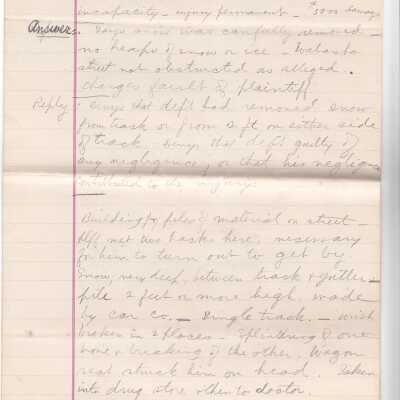 incapacity - injury permanent - $5000 damages
Answers. Says snow was carefully removed -
no heaps of snow or ice - Wabasha
street not obstructed as alleged.
Charges fault of plaintiff
Reply: Denys that deft had removed snow
from track or from 2 ft on either side
of track. Denys that deft guilty of
any negligence, or that his negligence
contributed to the injury.
Building & piles of material on street -
Plff met two hacks here, necessary
for him to turn out to get by
Snow very deep, between track & gutter -
pile 2 feet or more high, made
by car co. - Single track. - Wrist
broken in 2 places - Splintering of one
bone & breaking of the other. Wagon
seat struck him on head. Taken
into drug store then to doctor.